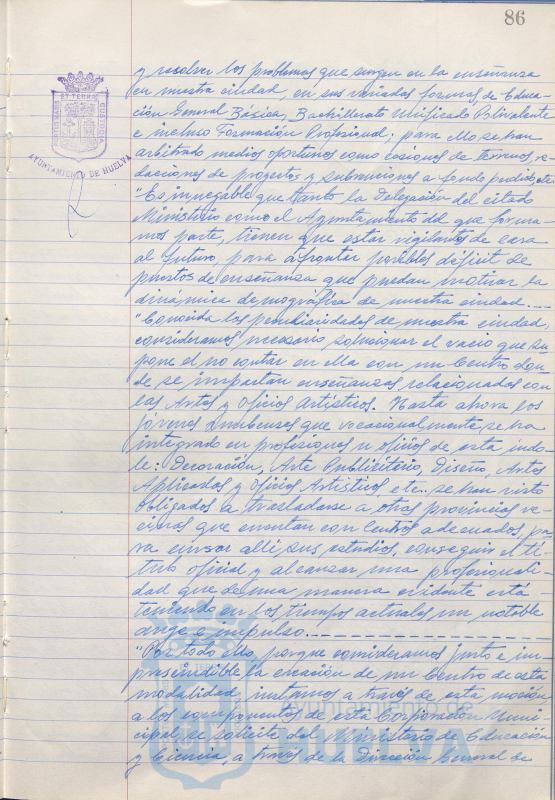 86
PORTUS MARIS
ET TERRE
CUSTODIA
AYUNTAMIENTO DE HUELVA
y resolver los problemas que surgen en la enseñanza
en nuestra ciudad, en sus variadas formas de Educa-
ción General Básica, Bachillerato Unificado Polivalente
e incluso Formación Profesional; para ello se han
arbitrado medios oportunos como cesiones de terrenos, re-
dacciones de proyectos y subvenciones a fondo perdido, etc.
"Es innegable que tanto la Delegación del citado
Ministerio como el Ayuntamiento del que forma-
mos parte, tienen que estar vigilantes de cara
al futuro para afrontar posibles déficit de
puestos de enseñanza que puedan motivar la
dinámica demográfica de nuestra ciudad....
"Conocida las peculiaridades de nuestra ciudad,
consideramos necesario solucionar el vacío que su-
pone el no contar en ella con un Centro don-
de se impartan enseñanzas relacionadas con
las Artes y Oficios Artísticos. Hasta ahora los
jóvenes onubenses que vocacionalmente se ha
integrado en profesiones u oficios de esta índo-
le: Decoración, Arte Publicitario, Diseño, Artes
Aplicadas y Oficios Artísticos, etc.. se han visto
obligados a trasladarse a otras provincias ve-
cinas que cuentan con Centros adecuados, pa-
ra cursar allí sus estudios, conseguir el tí-
tulo oficial y alcanzar una profesionali-
dad que de una manera evidente está
teniendo en los tiempos actuales un notable
auge e impulso.
"Por todo ello, porque consideramos justo e im-
prescindible la creación de un Centro de esta
modalidad instamos a través de esta moción
a los componentes de esta Corporación Muni-
cipal, se solicite del Ministerio de Educación
y Ciencia, a través de la Dirección General de
Ayuntamiento de
HUELVA